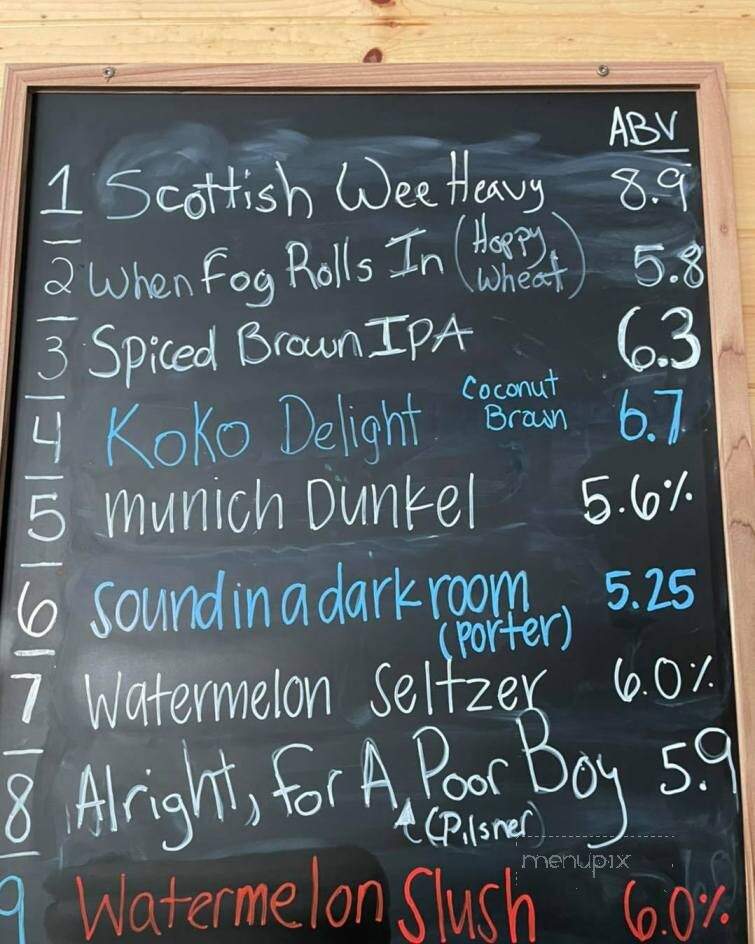 ABV
1 Scottish Wee Heavy 8.9
2 When Fog Rolls In (Hoppy Wheat) 5.8
3 Spiced Brown IPA 6.3
4 Koko Delight Coconut Brown 6.7
5 Munich Dunkel 5.6%
6 Sound in a dark room 5.25
(Porter)
7 Watermelon Seltzer 6.0%
8 Alright, for A Poor Boy 5.9
(Pilsner)
menupix
9 Watermelon Slush 6.0%